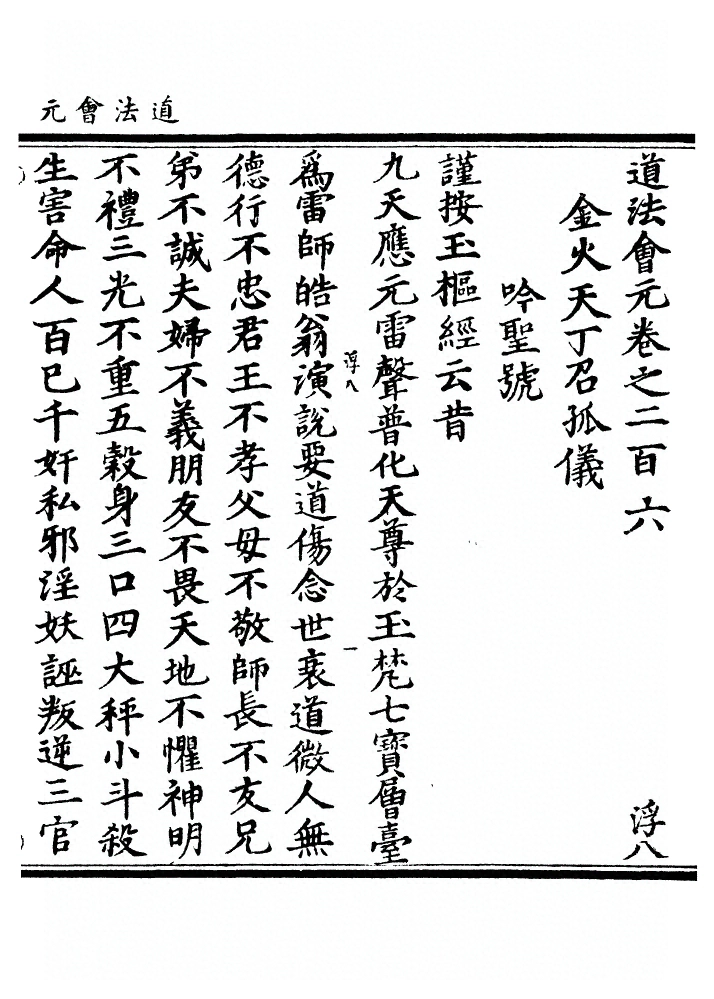 道法會元
道法會元卷之二百六
浮八
金火天丁召孤儀
吟聖號
謹按玉樞經云昔
九天應元雷聲普化天尊於玉梵七寶層臺
為雷師皓翁演說要道傷念世衰道微人無
浮八
一
德行不忠君王不孝父母不敬師長不友兄
弟不誠夫婦不義朋友不畏天地不懼神明
不禮三光不重五穀身三口四大秤小斗殺
生害命人百巳千奸私邪淫妖誣叛逆三官